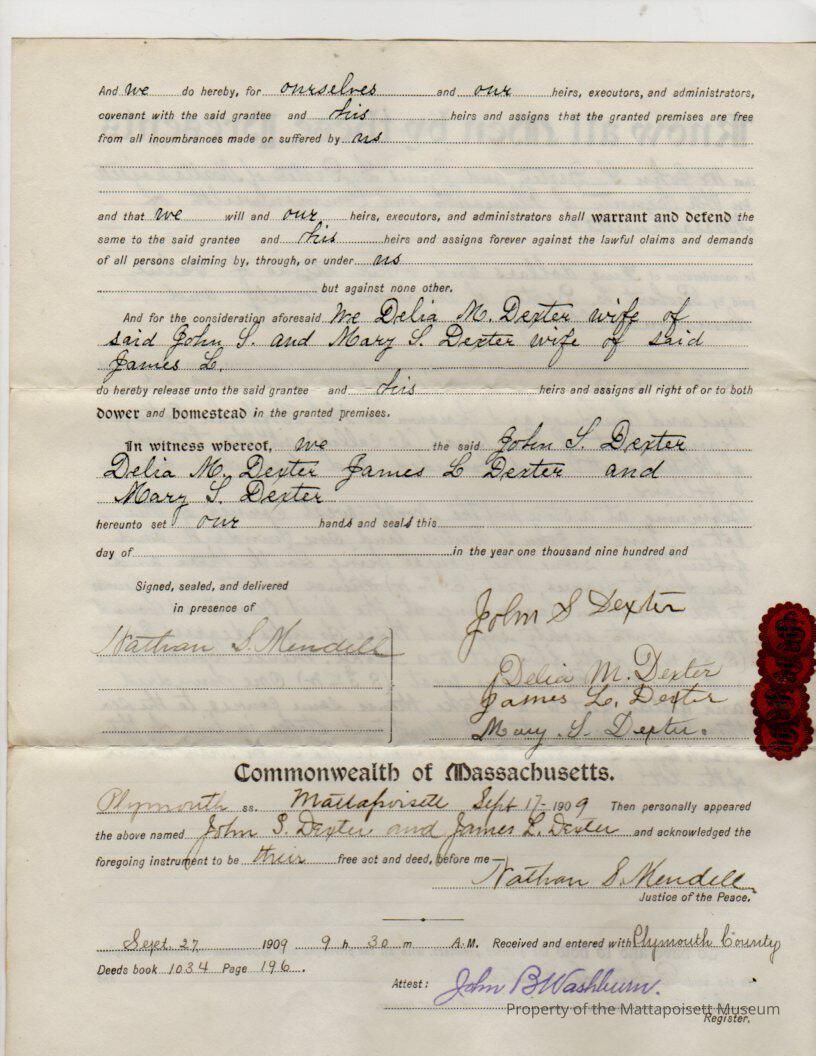 And we do hereby, for ourselves and our heirs, executors, and administrators,
covenant with the said grantee and his heirs and assigns that the granted premises are free
from all incumbrances made or suffered by us
and that we will and our heirs, executors, and administrators shall warrant and defend the
same to the said grantee and his heirs and assigns forever against the lawful claims and demands
of all persons claiming by, through, or under us
but against none other.
And for the consideration aforesaid We Delia M. Dexter wife of
said John S. and Mary S. Dexter wife of said
James L.
do hereby release unto the said grantee and his heirs and assigns all right of or to both
dower and homestead in the granted premises.
In witness whereof, we the said John S. Dexter
Delia M. Dexter James L Dexter and
Mary S. Dexter
hereunto set our hands and seals this
day of in the year one thousand nine hundred and
Signed, sealed, and delivered
in presence of
Nathan S. Mendell
John S Dexter
Delia M. Dexter
James L. Dexter
Mary. S. Dexter.
Commonwealth of Massachusetts.
Plymouth ss. Mattapoisett Sept 17- 1909 Then personally appeared
the above named John S. Dexter and James L. Dexter and acknowledged the
foregoing instrument to be their free act and deed, before me—
Nathan S. Mendell
Justice of the Peace.
Sept. 27 1909 9 h 30 m A.M. Received and entered with Plymouth County
Deeds book 1034 Page 196.
Attest: John B Washburn.
Property of the Mattapoisett Museum
Register.